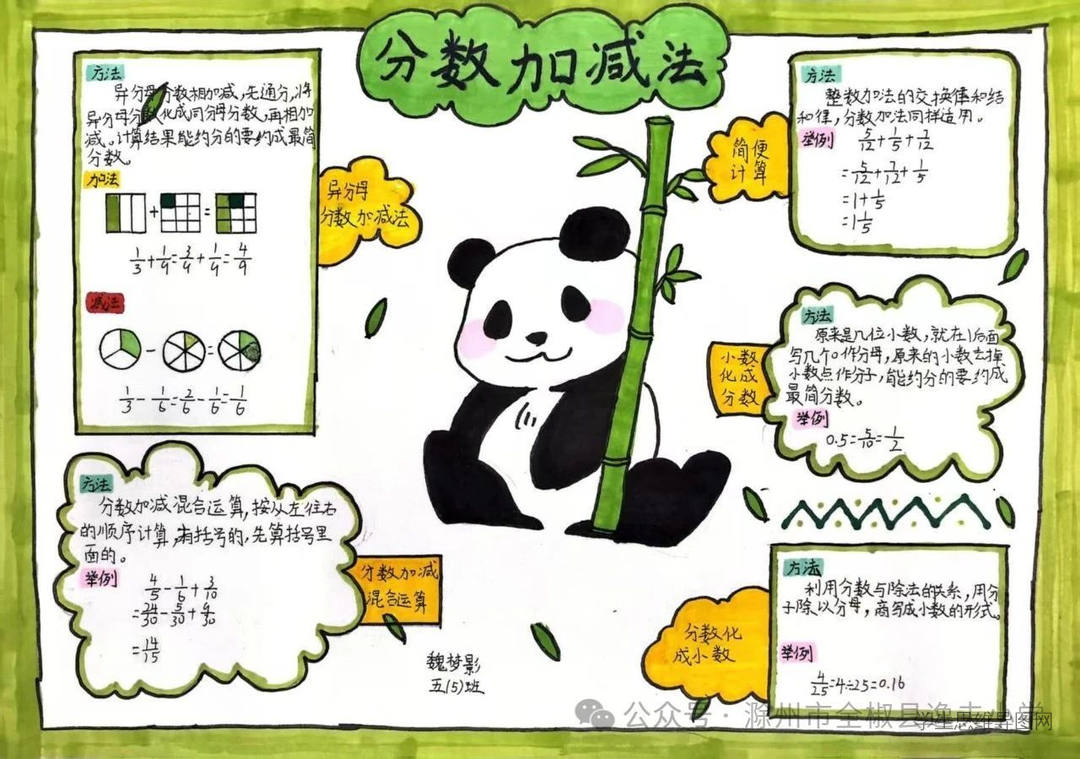 分数加减法
方法
异分母分数相加减,先通分,将
异分母分数化成同分母分数,再相加
减。计算结果能约分的要约成最简
分数。
加法
+ =
1/3+1/9=3/9+1/9=4/9
减法
- =
1/3-1/6=2/6-1/6=1/6
异分母
分数加减法
方法
分数加减混合运算,按从左往右
的顺序计算,有括号的,先算括号里
面的。
举例
4/5-1/6+3/10
=24/30-5/30+9/30
=14/15
分数加减
混合运算
魏梦影
五(5)班
简便
计算
方法
整数加法的交换律和结
和律,分数加法同样适用。
举例 5/12+1/5+7/12
=5/12+7/12+1/5
=1+1/5
=1 1/5
小数
化成
分数
方法
原来是几位小数,就在1后面
写几个0作分母,原来的小数去掉
小数点作分子,能约分的要约成
最简分数。
举例
0.5=5/10=1/2
分数化
成小数
方法
利用分数与除法的关系,用分
子除以分母,商写成小数的形式。
举例
4/25=4÷25=0.16
公众号·滁州市全椒县逸夫小学